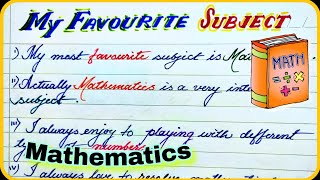 My Favourite Subject
i) My most favourite subject is Mat
MATH
ii) Actually Mathematics is a very inte
subject.
iii) I always enjoy to playing with different
numbers
Mathematics
iv) I always love to